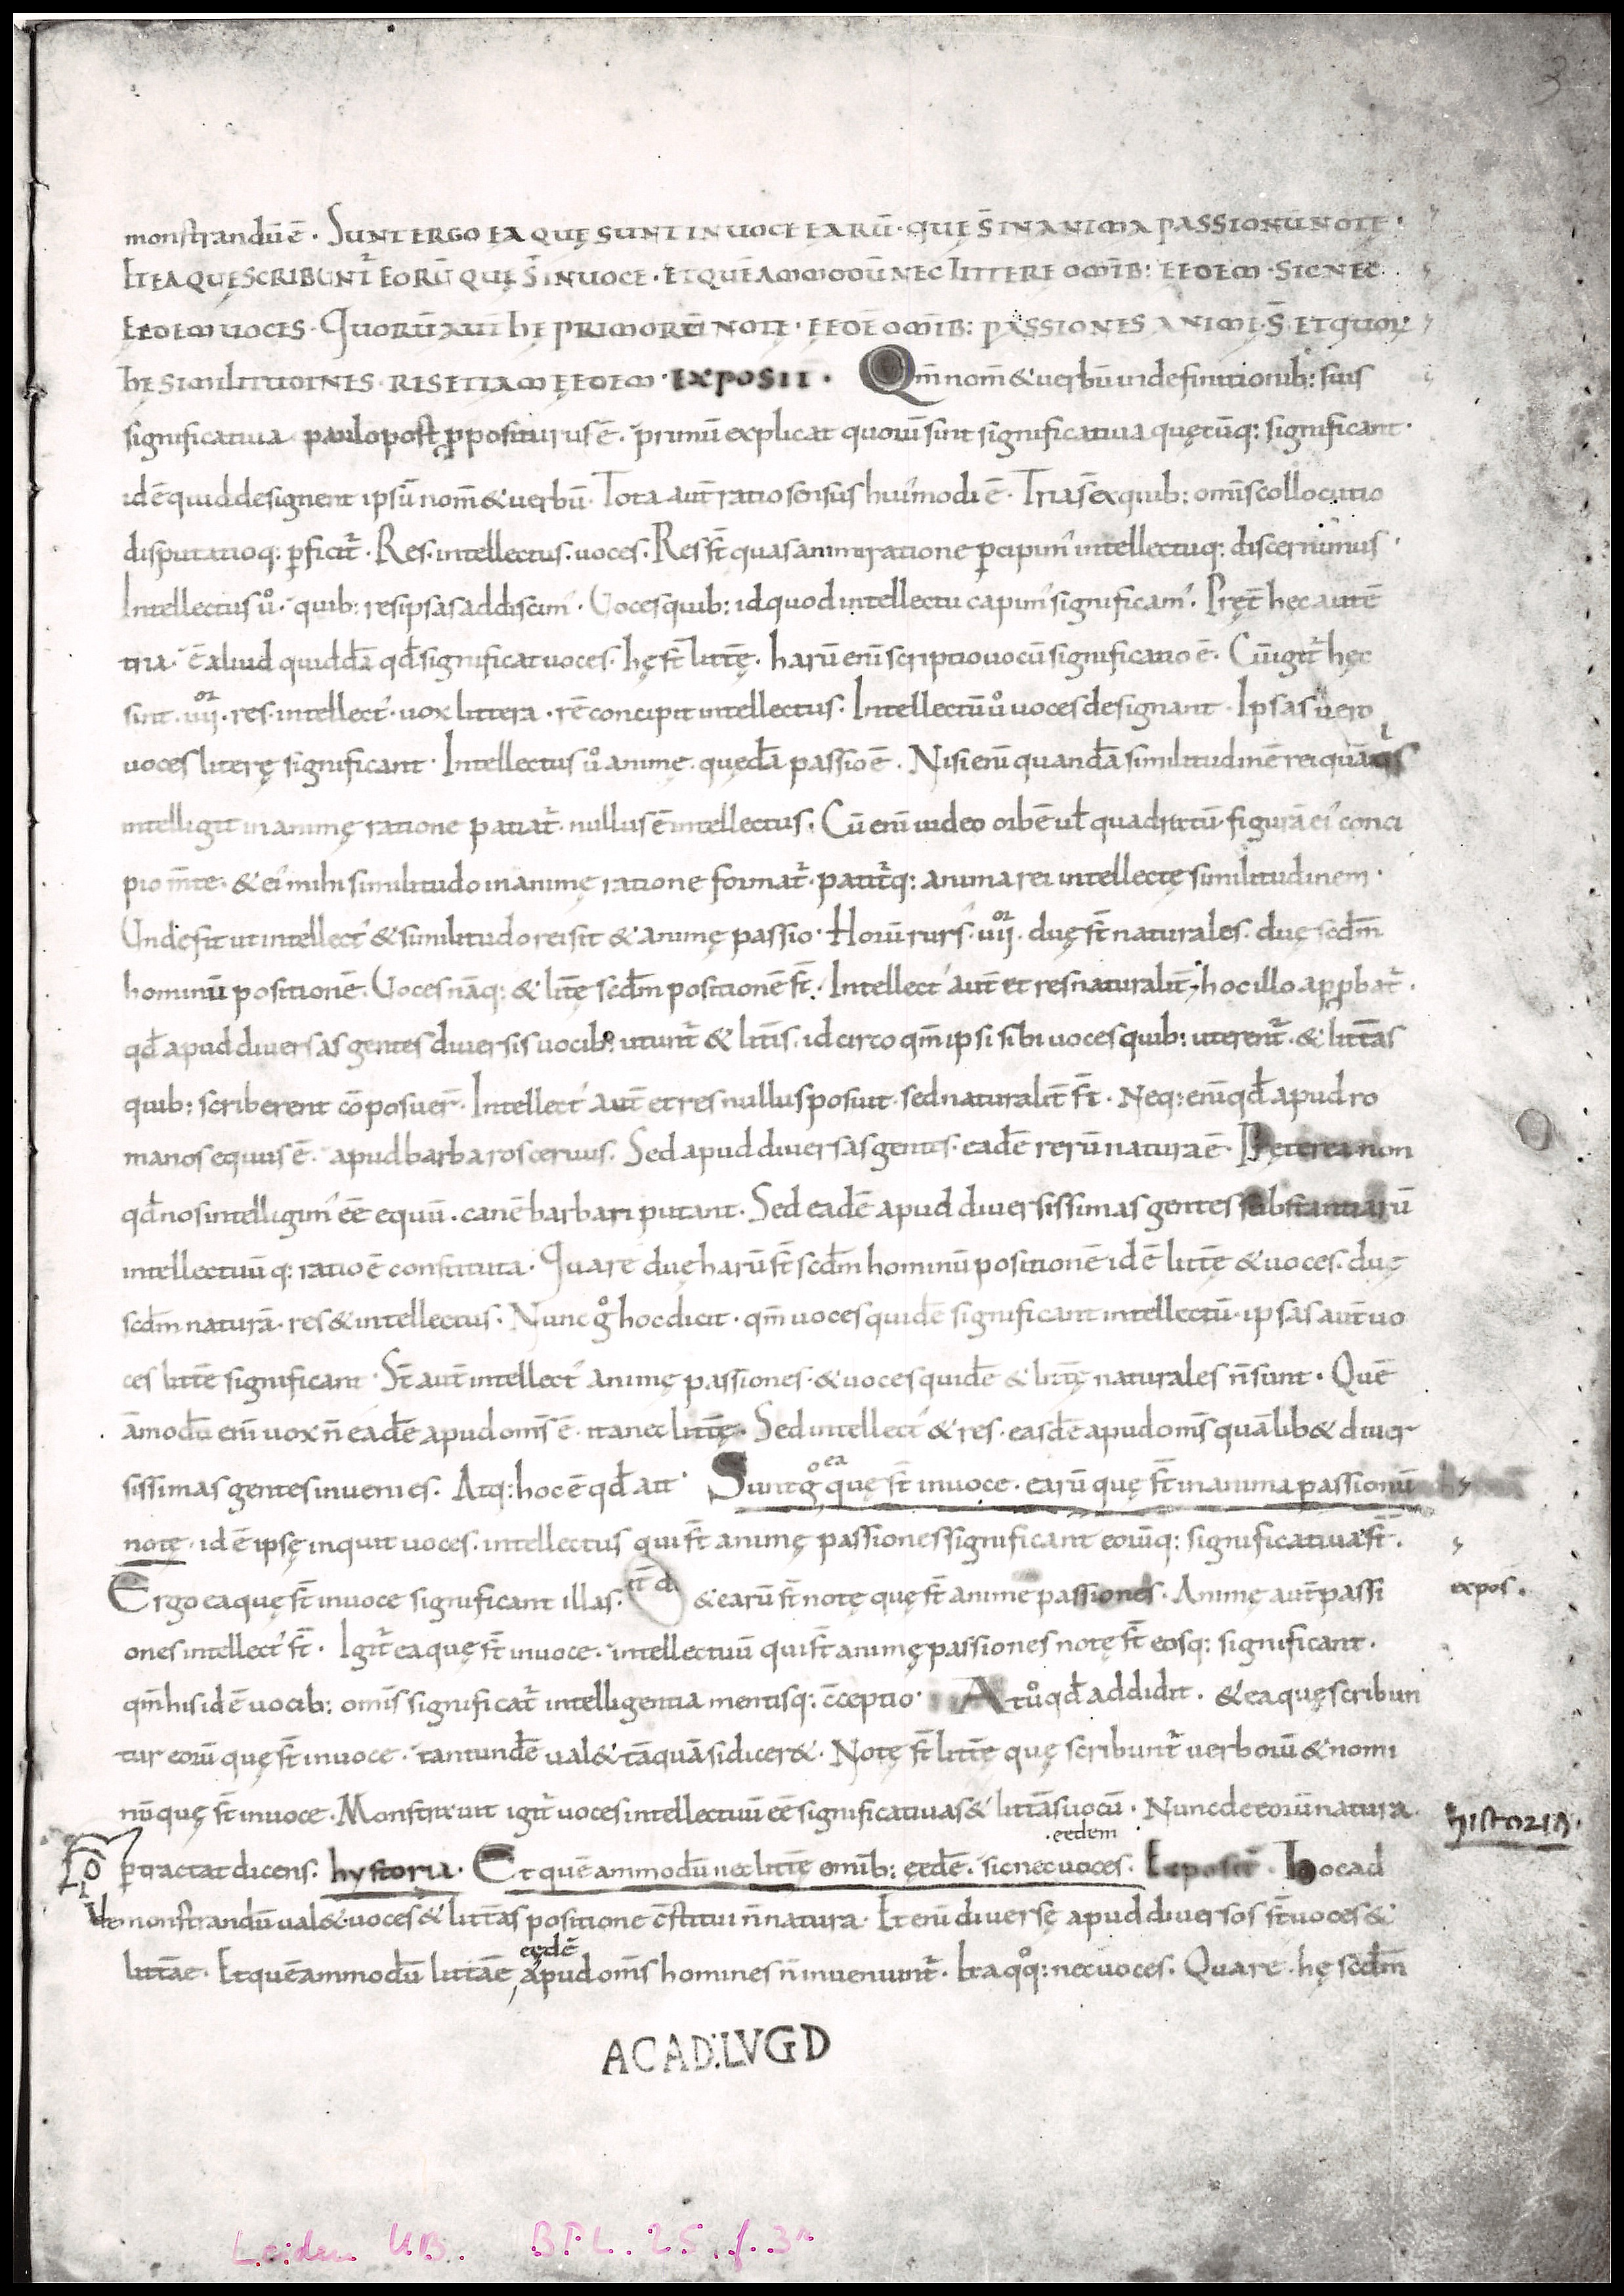 3
monstrandū ē . SUNT ERGO EA QUĘ SUNT IN UOCE EARŪ . QUĘ S̄ IN ANIMA PASSIONŪ NOTE .
ET EA QUĘ SCRIBUNT̄ EORŪ QUĘ S̄ IN UOCE . ET QUĒAMMODŪ NEC LITTERE OMĪB: EEDEM . SIC NEC
EEDEM UOCES . QUORŪ AUT̄ HĘ PRIMORŪ NOTE . EEDĒ OMĪB: PASSIONES ANIMĘ . S̄ . ET QUOR̄
HE SIMILITUDINES . RES ETIAM ĘEDEM . EXPOSIT̄ . Qm̄ nom̄ & uerbū in definitionib: suis
significatiua paulo post p̄positurus ē . primū explicat quorū sint significatiua quętūq: significant .
id ē quid designent ipsū nom̄ & uerbū . Tota aut̄ ratio sensus hui'modi ē . Tria s̄ ex quib: om̄is collocutio
disputatioq: ꝑficit̄ . Res . intellectus . uoces . Res st̄ quas animi ratione ꝑcipim' intellectuq: discernimus .
Intellectus ů . quib: res ipsas addiscim' . Uoces quib: id quod intellectu capim' significam' . Pręt̄ hęc autē
tria . ē aliud quiddā qd̄ significat uoces . hę st̄ littę̄ . harū eni scriptio uocū significatio ē . Cū igit̄ hęc
sint . uijor . res . intellect' . uox littera . rē concipit intellectus . Intellectū ů uoces designant . Ipsas uero
uoces literę significant . Intellectus ů animę quędā passio ē . Nisi enī quandā similitudinē rei quā qs
intelligit in animę ratione patiat̄ . nullus ē intellectus . Cū enī uideo orbē ul̄ quadratū . figurā ei' conci
pio m̄te . & ei' mihi similitudo in animę ratione format̄ . patit̄q: anima rei intellectę similitudinem .
Unde fit ut intellect' & similitudo rei sit & animę passio . Horū rurs' . iiijor . duę st̄ naturales . duę scdm̄
hominū positionē . Uoces nāq: & litt̄ę scdm̄ positionē st̄ . Intellect' aut̄ et res naturalit̄ . hoc illo apꝓbat̄ .
qd̄ apud diuersas gentes diuersis uocib: utunt̄ & litt̄is . idcirco qm̄ ipsi sibi uoces quib: uterent̄ . & litt̄as
quib: scriberent cōposuer̄ . Intellect' aut̄ et res nullus posuit . sed naturalit̄ st̄ . Neq: enī qd̄ apud ro
manos equus ē . apud barbaros ceruus . Sed apud diuersas gentes . eadē rerū natura ē . Pręterea non
qd̄ nos intelligim' ēē equū . canē barbari putant . Sed eadē apud diuersissimas gentes substantiarū
intellectuūq: ratio ē constituta . Quare duę harū st̄ scdm̄ hominū positionē id ē litt̄ę & uoces . duę
scdm̄ naturā . res & intellectus . Nunc g̊ hoc dicit . qm̄ uoces quidē significant intellectū . ipsas aut̄ uo
ces litt̄e significant . St̄ aut̄ intellect' animę passiones . & uoces quidē & litt̄ę naturales n̄ sunt . Quē
āmodū enī uox n̄ eadē apud om̄s ē . ita nec litt̄ę . Sed intellect' & res . easdē apud om̄s quāslib& diuer
sissimas gentes inuenies . Atq: hoc ē qd̄ ait . Sunt g̊ ea quę st̄ in uoce . earū quę st̄ in anima passionū
notę . id ē ipsę inquit uoces . intellectus qui st̄ animę passiones significant eorūq: significatiua st̄ .
Ergo ea quę st̄ in uoce significant illas . & earū st̄ notę quę st̄ anime passiones . Animę aut̄ passi
expos .
ones intellect' st̄ . Igit̄ ea quę st̄ in uoce . intellectuū qui st̄ animę passiones notę st̄ eosq: significant .
qm̄ his id ē uocib: om̄is significat̄ intelligentia mentisq: c̄ceptio . At ů qd̄ addidit . & ea quę scribun
tur eorū quę st̄ in uoce . tantundē ual& tāquā si dicer& . Notę st̄ litt̄e quę scribunt̄ uerborū & nomi
nū quę st̄ in uoce . Monstrauit igit̄ uoces intellectuū ēē significatiuas & litt̄as uocū . Nunc de eorū natura
historia .
ꝑtractat dicens . hystoria . Et quēammodū nec litt̄ę omib: ęedē . sic nec uoces . eedem Exposit̄ . Hoc ad
demonstrandū ual& uoces & litt̄as positione c̄stitui n̄ natura . Et enī diuersę apud diuersos st̄ uoces &
litt̄ae . Et quēammodū litt̄ae eędē apud om̄s homines n̄ inueniunt̄ . Ita qq̊: nec uoces . Quare . hę scdm̄
ACAD. LVGD
Leiden UB. BPL. 25. f. 3r